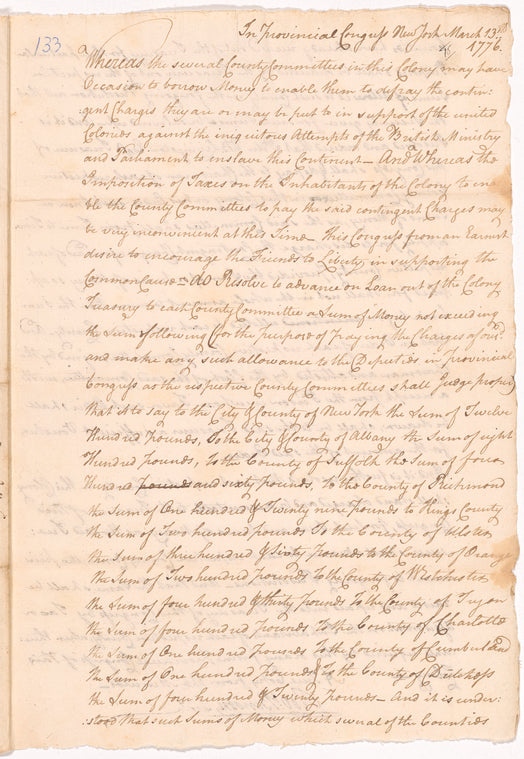 133
In Provincial Congress New York March 13th
1776.
Whereas the several County Committees in this Colony may have
Occasion to borrow Money to enable them to defray the contin-
:gent Charges they are or may be put to in support of the united
Colonies against the iniquitous Attempts of the British Ministry
and Parliament to enslave this Continent – And Whereas the
Imposition of Taxes on the Inhabitants of the Colony to ena
ble the County Committees to pay the said contingent Charges may
be very inconvenient at this Time – this Congress from an Earnest
desire to encourage the Friends to Liberty in supporting the
Common Cause – Do Resolve to advance on Loan out of the Colony
Treasury to each County Committee a Sum of Money not exceeding
the Sums following (for the purpose of paying the Charges
and make any such allowance to the Deputies in provincial
Congress as the respective County Committees shall Judge proper)
that is to say to the City & County of New York the Sum of Twelve
Hundred pounds, To the City & County of Albany the Sum of eight
Hundred pounds, to the County of Suffolk the Sum of four
Hundred pounds and sixty pounds, to the County of Richmond
the Sum of One hundred & Twenty nine pounds to Kings County
the Sum of Two hundred pounds To the County of Ulster
the Sum of three hundred & Sixty pounds to the County of Orange
the Sum of Two hundred pounds To the County of Westchester
the Sum of four hundred & thirty pounds To the County of Tryon
the Sum of four hundred pounds To the County of Charlotte
the Sum of One hundred pounds To the County of Cumberland
the Sum of One hundred pounds To the County of Dutchess
the Sum of four hundred & Twenty pounds – And it is under-
:stood that such Sums of Money which several of the Counties